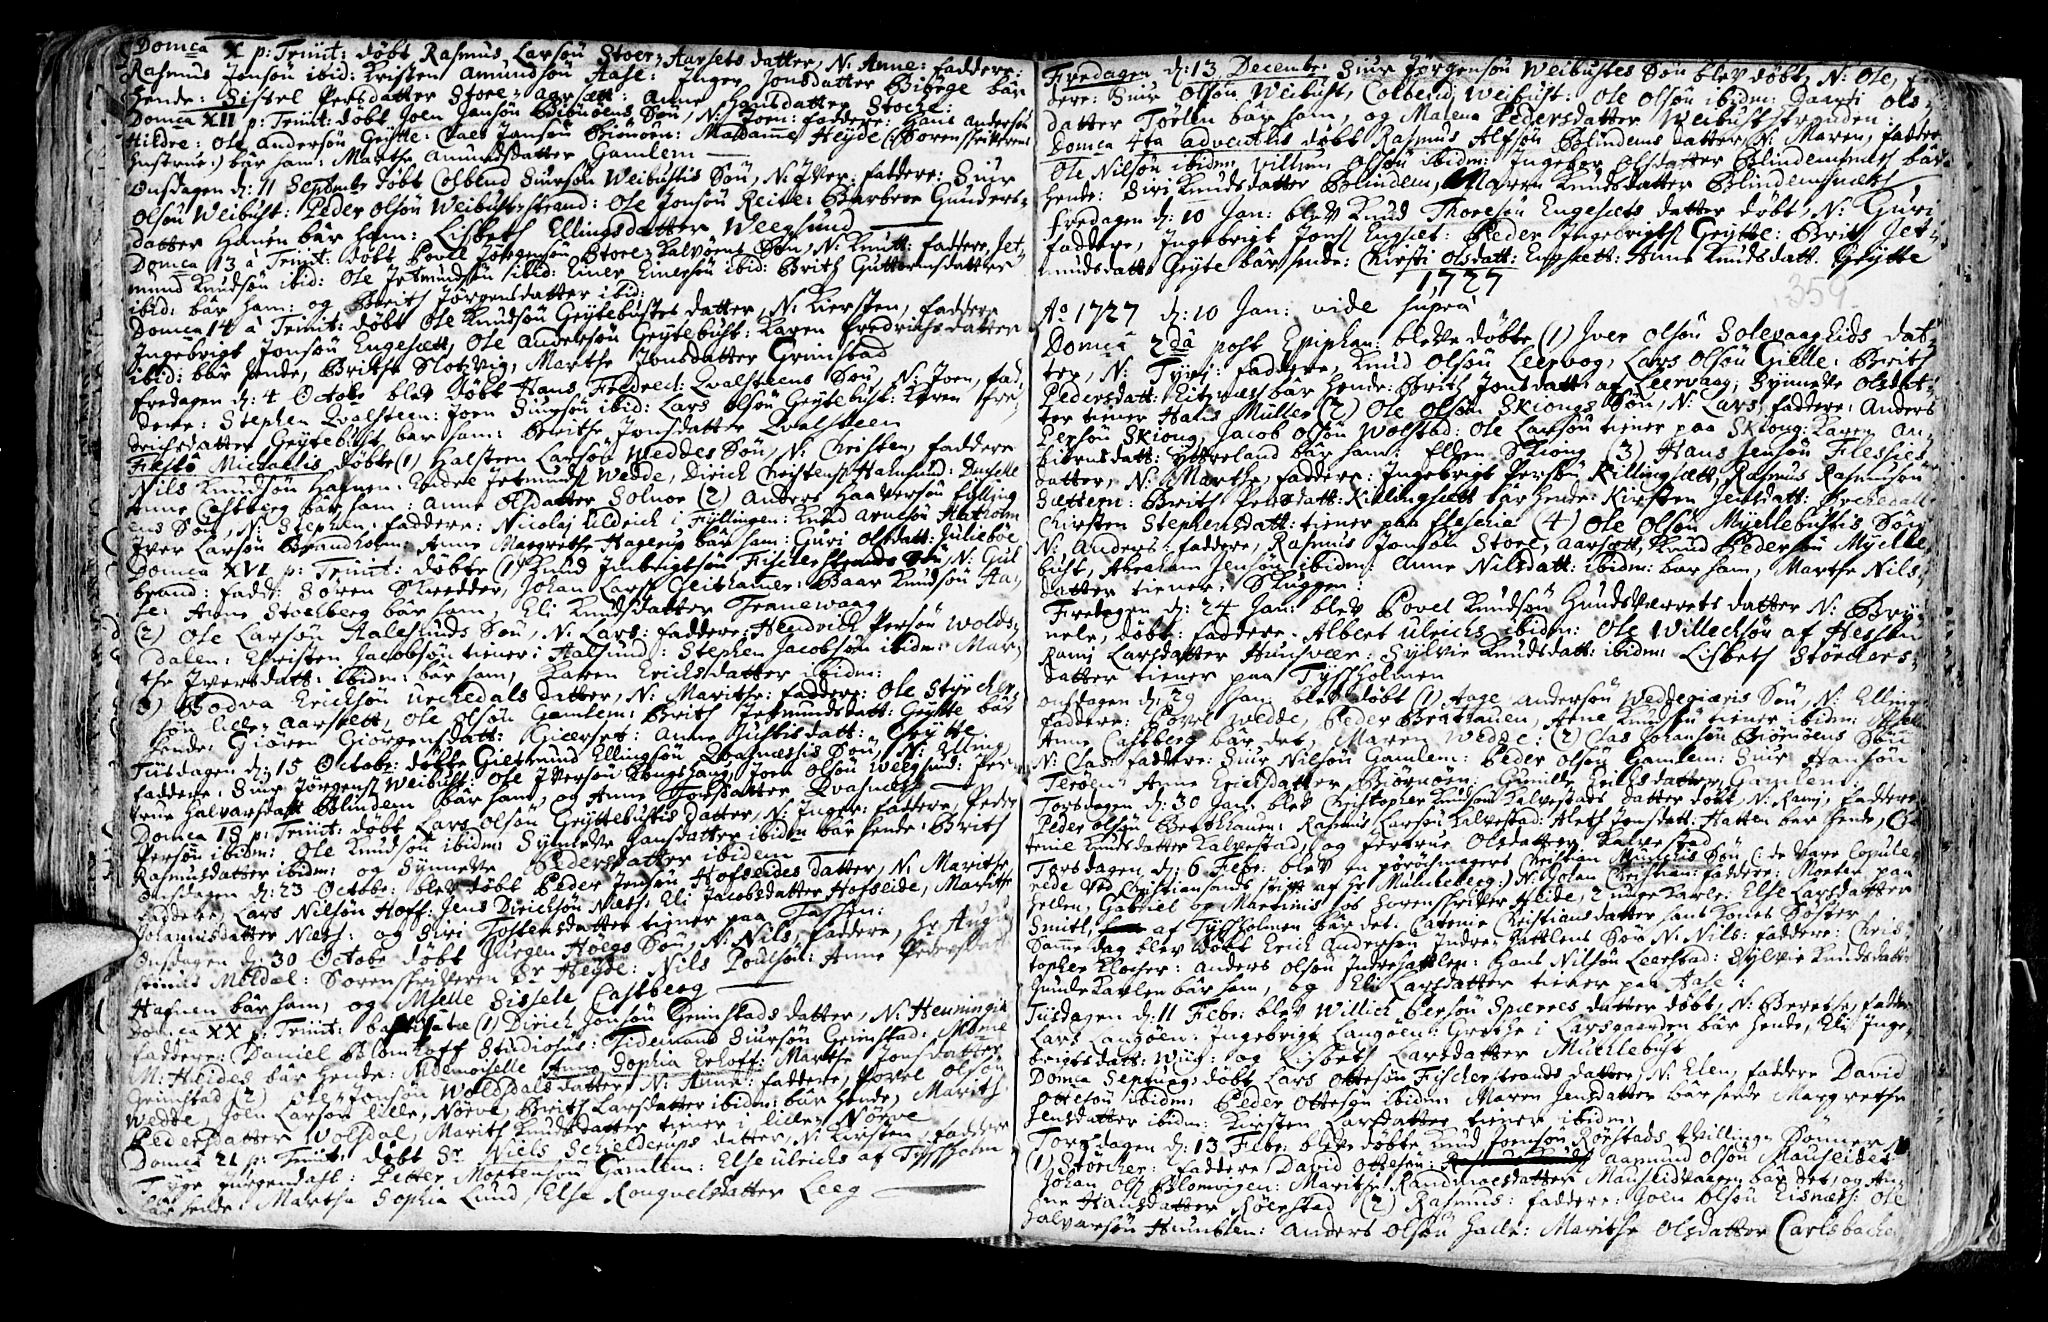 Domca X p: Trinit: döbt Rasmus Larsøn Stoer-Aarsets datter, N: Anne: faddere:
Rasmus Jonsøn ibid: Kristen Amundsøn Aase: Inger Jonsdatter Bibøge bar
hende: Sissel Persdatter Store-aarsætt: Anne Hansdatter Stocke:
Domca XII p: Trinit: döbt Joen Jansøn Biönöens Søn, N: Joen: faddere: Hans Andersøn
Hildre: Ole Andersøn Grytte: Claes Jonsøn Biönöen: Madame Heyde (: Sorenskriverens
hustrue:) bar ham: Marthe Amundsdatter Gamlem
Onsdagen d: 11 Septembr döbt Colbend Siursøn Weibustis Søn, N: Iver: faddere: Siur
Olsøn Weibust: Peder Olsøn Weibust-strand: Ole Jonsøn Reite: Barbroe Gunders-
datter Hanen bar ham: Lisbeth Ellingsdatter Weegsund
Domca 13 à Trinit: döbt Povel Jørgensøn Store-Kalvøens Søn, N: Knutt: faddere, Jet-
mund Knudsøn ibid: Ole Jetmundsøn ibid: Einer Einersøn ibid: Brith Guttormsdatter
ibid: bar ham: og Brith Jörgensdatter ibid:
Domca 14 à Trinit: döbt Ole Knudsøn Grytebustes datter, N: Kiersten, faddere
Ingebrigt Jonsøn Engesætt, Ole Andersøn Grytebust: Karen Fredrichsdatter
ibid: bar hende, Brithe Slotvig, Marthe Jonsdatter Grimstad
Fredagen d: 4 Octobr blev döbt Hans Fredrect: Qvalsteens Søn, N: Joen, fad-
dere: Stephen Qvalsteen: Joen Siursøn ibid: Lars Olsøn Grytebust: Karen Fre-
drichsdatter Grytebust bar ham: Brithe Jonsdatter Qvalsteen
Festo Michaelis döbte (1) Halsteen Larsøn Weddes Søn, N: Christen, faddere
Nils Knudsøn Hafnen: Endre Jetmunds Wedde, Dirich Christens Halmsund: Dnselle
Anne Castberg bar ham: Anne Olsdatter Solnør (2) Anders Haaversøn Fylling-
ens Søn, N: Stephen: faddere: Nicolaj Uldrich i Fyllingen: Knud Arnesøn Aleholm
Iver Larsøn Brandholm: Anne Margrethe Hagerup bar ham: Guri Olsdatt: Julieböe
Domca XVI p: Trinit: döbte (1) Knud Imbrigtsøn Fischerstrands Søn, N: Gul-
brand: fadd: Søren Skredder, Johan Lars: Geithamer: Baar Knudsøn Aa-
se: Anne Stoelberg bar ham, Eli Knudsdatter Trannewaag
(2) Ole Larsøn Aalesunds Søn, N: Lars: faddere: Hendrich Persøn Wolds-
dalen: Christen Jacobsøn tiener i Aalsund: Stephen Jacobsøn ibidm: Mar-
the Iversdatt: ibidm: bar ham, Karen Erichsdatter ibidm:
3) Bodva Erichsøn Urckedals datter, N: Marithe: faddere: Ole Styrcker-
søn lille-aarsætt, Ole Olsøn Gamlem: Brith Jetmundsdatt: Grytte bar
hende: Giøren Giörgensdatt: Gieerset: Anne Justisdatt: Grytte
Tiisdagen d: 15 Octobr: döbte Gietmund Ellingsøn Qvasnessis Søn, N: Elling,
faddere, Siur Jørgens: Weibust: Ole Iversøn Kongshang, Joen Olsøn Weegsund: Per-
true Halvarsdatt Blindem bar ham, og Anne Joensdatter Qvasnes
Domca 18 p: Trinit: döbt Lars Olsøn Gryttebustis datter, N: Inger: faddere, Peder
Persøn ibidm: Ole Knudsøn ibidm: Synneve Hansdatter ibidm bar hende: Brith
Rasmusdatter ibidm: og Synneve Pedersdatter ibidem
Onsdagen d: 23 Octobr: blev döbt Peder Jensøn Hofseides datter, N: Marithe
faddere, Lars Nilsøn Hoff: Jens Dirichsøn Næss: Eli Jacobsdatter Hofseide, Marithe
Johannisdatter Næss: og Siri Tostensdatter tiener paa Tassen:
Onsdagen d: 30 Octobr döbt Jürgen Höegs Søn, N: Nils, faddere, Hr Augu-
stinus Meldal: Sorenskriveren Sr Heyde: Nils Poulsøn: Anne Pedersdatt
Hafnen bar ham, og Mselle Sissele Castberg
Domca XX p: Trinit: baptisatæ (1) Dirich Jonsøn Grimstads datter, N: Henningia
faddere: Daniel Blomhoff Studiosus: Tidemand Siursøn Grimstad: Mdme
M: Heides bar hende: Mdemoiselle Anna Sophia Erhoff: Marthe Jonsdatter
Grimstad (2) Ole Jonsøn Woldsdals datter, N: Anne: faddere, Povel Olsøn
Wedde, Joen Larsøn lille-Nørve, Brith Larsdatter ibidm: bar hende, Marith
Pedersdatter Wolsdal, Marith Knudsdatter tiener i lille-Nørve
Domca 21 p: Trinit: döbt Sr Niels Schielderups datter, N: Kirsten: faddere
Tyge Jürgensdatt: Petter Mortensøn Gamlem: Else Ulrichs af Tyssholm
bar hende: Marthe Sophia Lund, Else Rongvelsdatter Leeg
Fredagen d: 13 Decembr Siur Jørgensøn Weibustes Søn blev döbt, N: Ole, fad-
dere: Siur Olsøn Weibust, Colbend Weibust: Ole Olsøn ibidm: Ols-
datter Töelen bar ham, og Malena Pedersdatter Weibuststranden:
Domca 4ta adventus döbt Rasmus Alfsøn Blindems datter, N: Maren, faddere
Ole Nilsøn ibidm, Villum Olsøn ibidm: Ingebor Olsdatter Blindemsnæss bar
hende: Siri Knudsdatter Blindem, Maren Knudsdatter Blindemsnæss
Fredagen d: 10 Jan: blev Knud Thoresøn Engesæts datter döbt, N: Guri
faddere, Ingebrigt Jons: Engesæt: Peder Ingebrigts: Grytte: Brith Jet-
mundsdatt: Gryte bar hende: Chirsti Olsdatt: Engesætt: Anne Knudsdatt: Grytte
1727
359
Ao 1727 d: 10 Jan: vide supra
Domca 2da post Epiphan: bleve döbte (1) Iver Olsøn Solevaagseids dat-
ter, N: Tyri: faddere, Knud Olsøn Leervog, Lars Olsøn Gielle: Brith
Pedersdatt: Eitrnes bar hende: Brith Jonsdatt: af Leervaag, Synneve Olsdat-
ter tiener Hans Müller (2) Ole Olsøn Skiongs Søn, N: Lars, faddere: Anders
Persøn Skiong, Jacob Olsøn Wolstad: Ole Larsøn tiener paa Skiong: Karen An-
biörnsdatt: Ytterland bar ham: Ellen Skiong (3) Hans Jensøn Flessies
datter, N: Marthe, faddere: Ingebrigt Persøn Killingsætt, Rasmus Rasmusøn
Sættem: Brith Persdatt: Killingsætt bar hende: Kirsten Jensdatt:
Chirsten Stephensdatt: tiener paa Flescie (4) Ole Olsøn Myellebustis Søn
N: Anders: faddere, Rasmus Jonsøn Store-aarsætt, Knud Pedersøn Myelle-
bust, Abraham Jensøn ibidm: Anne Nilsdatt: ibidm: bar ham, Marthe Nils-
datter tiener Skuggen:
Fredagen d: 24 Jan: blev Povel Knudsøn Hundsværrets datter N: Bry-
nele, döbt: faddere: Albert Ulrichs ibidm: Ole Willechsøn af Hessen
Ranj Larsdatter Hunsvær: Sylvie Knudsdatt: ibidm: Lisbeth Störckers-
datter tiener paa Tyssholmen
Onsdagen d: 29 Jan: blev döbt (1) Aage Andersøn Weddegiæris Søn, N: Elling:
faddere: Povel Wedde, Peder Brathauen, Arne Knudsøn tiener ibidm: Mselle
Anne Castberg bar det, Maren Wedde: (2) Clas Johansøn Biörnöens Søn
N: Clas: faddere: Siur Nilsøn Gamlem: Peder Olsøn Gamlem: Siur Hansøn
Terøen: Anne Erichsdatter Biörnöen: Gunilde Erichsdatter Gamlem:
Torsdagen d: 30 Jan: blev Christopher Knudsøn Kalvestads datter döbt, N: Ranj, faddere
Peder Olsøn Bratthauen: Rasmus Larsøn Kalvestad: Aleth Jonsdatt: Hatlen bar hende, Ca-
trine Knudsdatter Kalvestad, og Jertrue Olsdatter Kalvestad
Torsdagen d: 6 Febr: blev en pörochmagers Christian Søn, (: de vare Copule-
rede ved Christiansands stift af Hr Munteberg:) N: Johan Christian: faddere: Morten paa
Hellen, Gabriel og Martinus hos Sorenskriver Heide, 2 unge Karle: Else Larsdatter
Smitt, af Tyssholmen bar det, Catrine Christiansdatter hans Kones Søster
Samme dag blev döbt Erich Andersøn Indre-Hatlens Søn N: Nils: faddere: Chris-
topher Klocher: Anders Olsøn Indrehatlen: Hans Nilsøn Leerstad: Sylvie Knudsdatt:
Gundekarlen bar ham, og Eli Larsdatter tiener paa Aase:
Tiisdagen d: 11 Febr: blev Willich Persøn Spierres datter döbt, N: Berethe, faddere
Lars Langöen: Ingebrigt Langöen: Grethe i Larsgaarden bar hende, Eli Inge-
brigtsdatt: Wiig: og Lisbeth Larsdatter Muchlebust
Domca Septuag: döbt Lars Ottesøn Fischerstrands datter, N: Elen, faddere David
Ottesøn ibidm: Peder Ottesøn ibidm: Maren Jensdatter bar hende Margrethe
Jensdatter ibidm: Kirsten Larsdatter tiener ibidm:
Torsdagen d: 13 Febr: blev döbte Knud Joensøn Rörstads tvillinge Sønner N
(1) Störcker: faddere David Ottesøn: Aamund Olsøn Mauseidet
Johan Ols: Blomvigen: Marithe Randinoesdatter Mauseidvaagen bar det, og An-
ne Hansdatter Röerstad (2) Rasmus: faddere: Joen Olsøn Eisnæss: Ole
Halvarsøn Humblen: Anders Olsøn Halle: Marithe Olsdatter Carlsbache